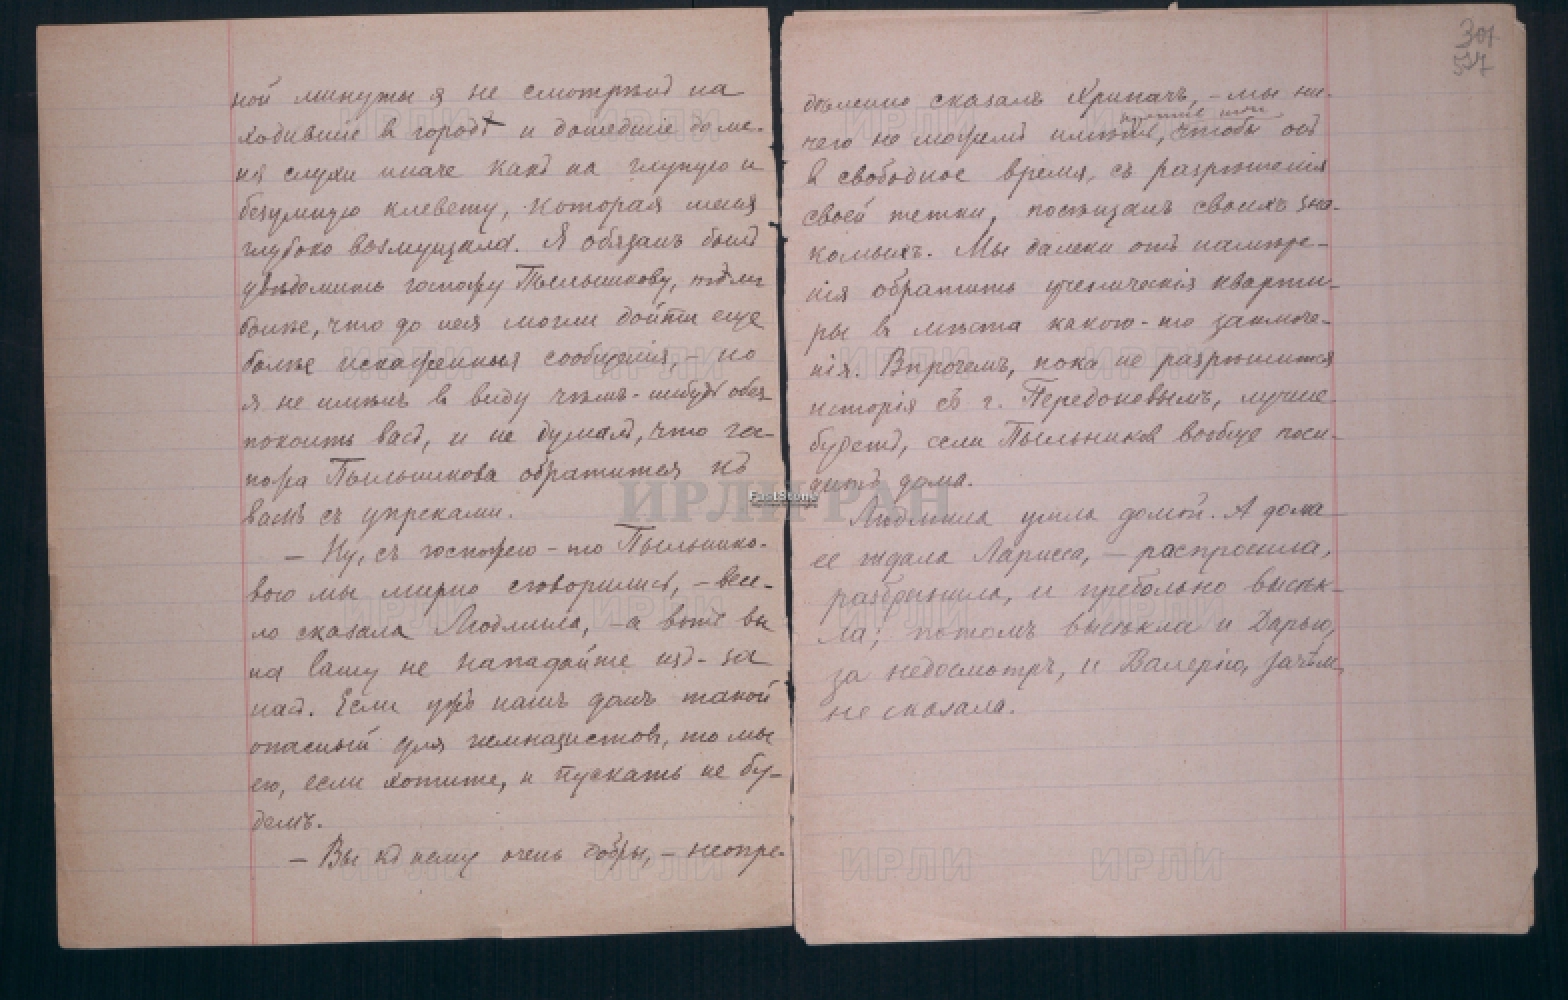 ной минуты я не смотрѣлъ на
ходившіе въ городѣ и дошедшіе до ме-
ня слухи иначе какъ на глупую и
безумную клевету, которая меня
глубоко возмущала. Я обязанъ былъ
увѣдомить госпожу Пыльникову, тѣмъ
болѣе, что до нея могли дойти еще
болѣе искаженныя сообщенія, – но
я не имѣлъ въ виду чѣмъ-нибудь обез-
покоить васъ, и не думалъ, что гос-
пожа Пыльникова обратится къ
вамъ съ упреками.
– Ну, съ госпожею-то Пыльнико-
вою мы мирно сговорились, – весе-
ло сказала Людмила, – а вотъ вы
на Сашу не нападайте изъ-за
насъ. Если ужъ нашъ домъ такой
опасный для гимназистовъ, то мы
его, если хотите, и пускать не бу-
демъ.
– Вы къ нему очень добры, – неопре-
дѣленно сказалъ Хрипачъ, – мы ни-
противъ того
чего не можемъ имѣть, чтобы онъ
въ свободное время, съ разрѣшенія
своей тетки, посѣщалъ своихъ зна-
комыхъ. Мы далеки отъ намѣре-
нія обратить ученическія кварти-
ры въ мѣста какого-то заключе-
нія. Впрочемъ, пока не разрѣшится
исторія съ г. Передоновымъ, лучше
будетъ, если Пыльниковъ вообще поси-
дитъ дома.
Людмила ушла домой. А дома
ее ждала Лариса, – распросила,
разбранила, и пребольно высѣк-
ла; потомъ высѣкла и Дарью,
за недосмотръ, и Валерію, зачѣмъ
не сказала.
301
517
ИРЛИ РАН
FastStone
ИРЛИ